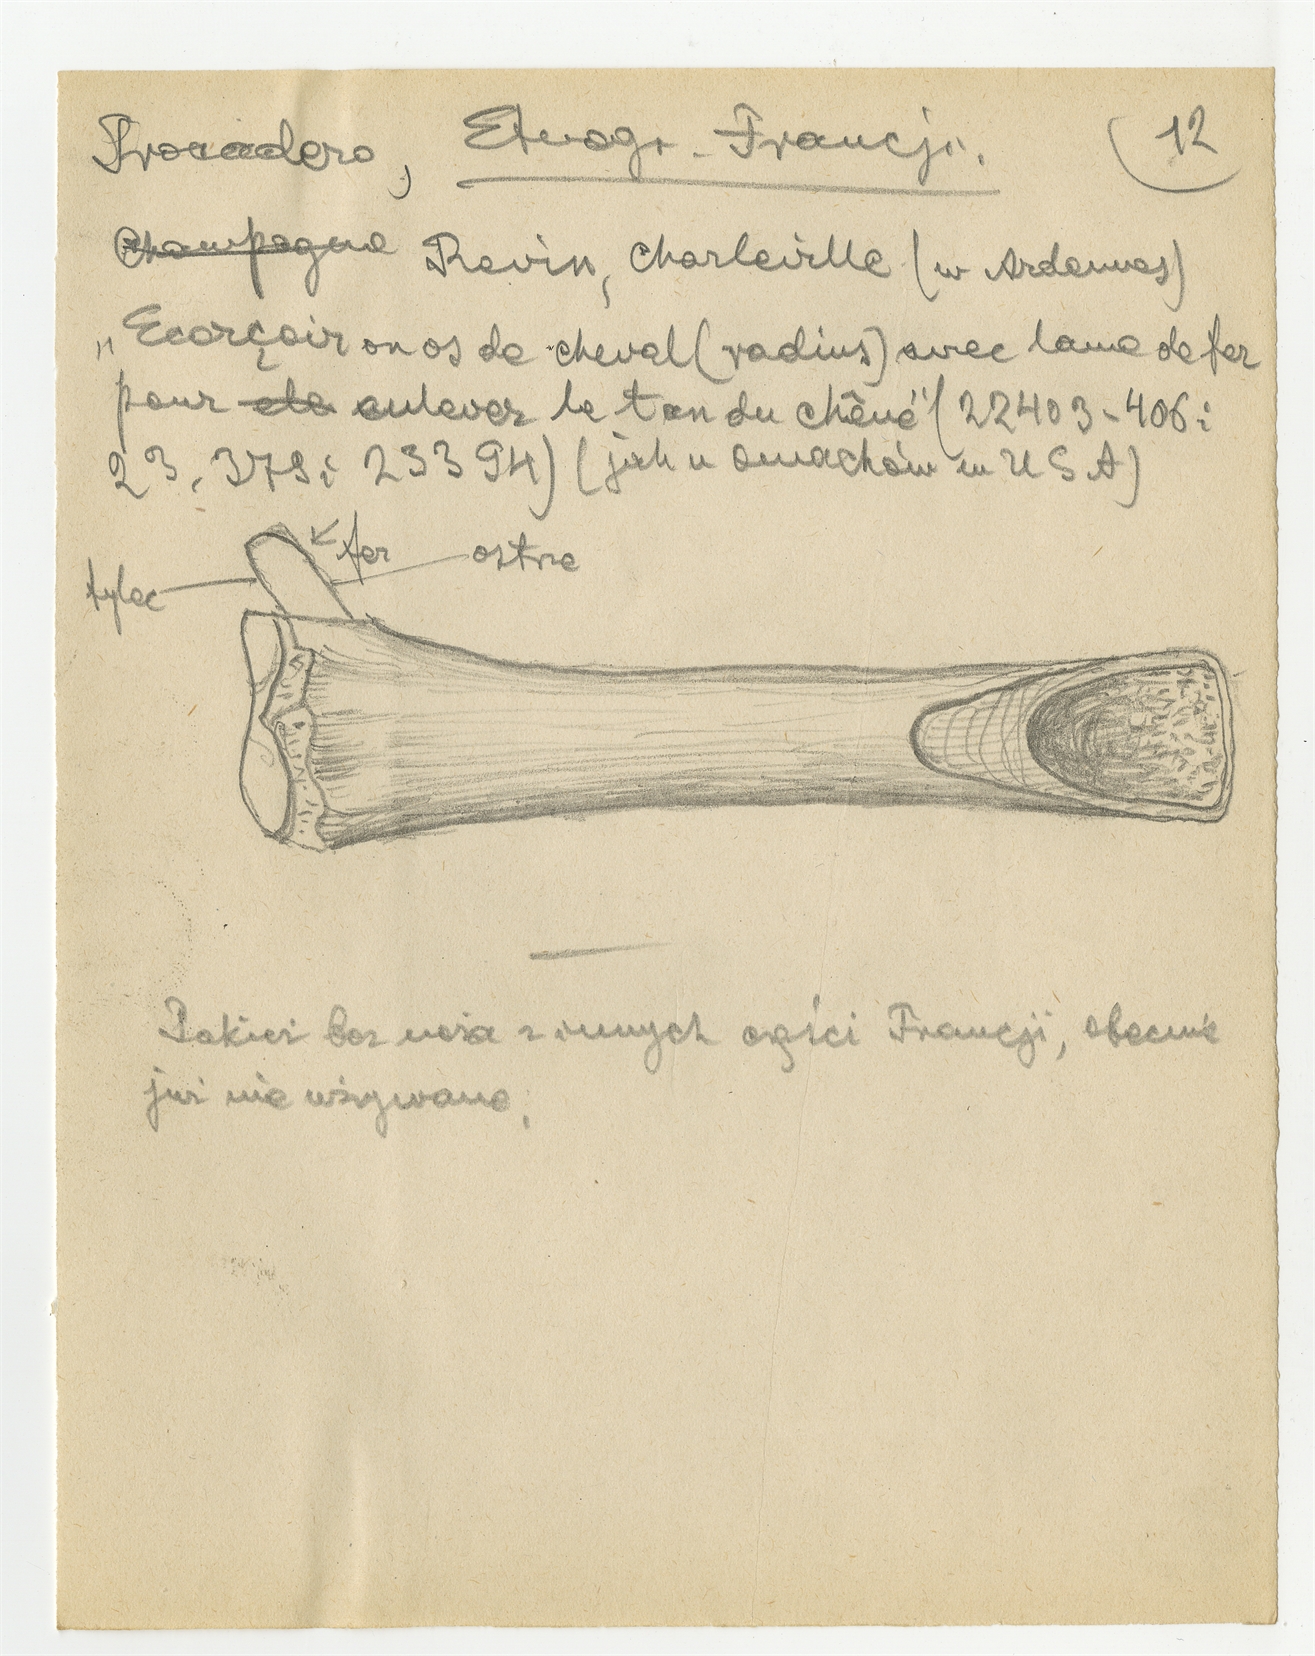 Trocadero, Etnogr. Francji. 12
Champagne Revin, Charleville (w Ardennes)
„Ecorçoir en os de cheval (radius) avec lame de fer
pour enlever le tan du chêne" (22403-406 i
23.379 i 23394) (jak u Omachów w USA)
fer ostrze
tylec
Takież bez noża z innych części Francji, obecnie
już nie używane.